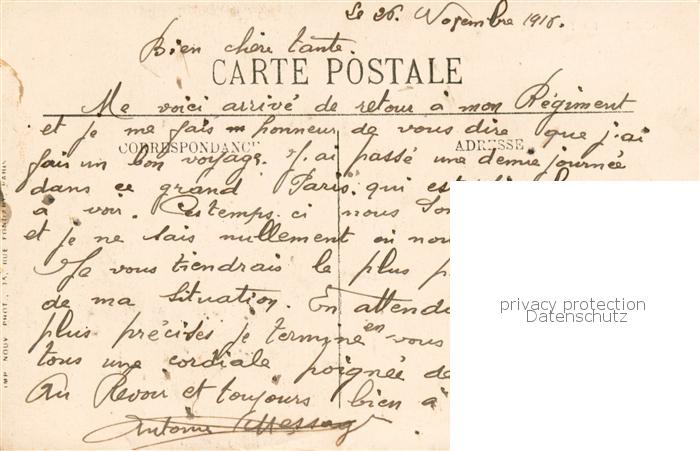 Le 26. Novembre 1916.
Bien chère tante.
CARTE POSTALE
Me voici arrivé de retour à mon Régiment
et je me fais un honneur de vous dire que j'ai
CORRESPONDANCE
ADRESSE
fait un bon voyage. J'ai passé une demie journée
dans ce grand Paris, qui est
à voir. Ces temps-ci nous
et je ne sais nullement où
Je vous tiendrais le plus
de ma situation. En
plus précises je termine en vous
tous une cordiale poignée de
Au Revoir et toujours bien à
Antoine
privacy protection
Datenschutz
IMP. NOUV. PHOT.